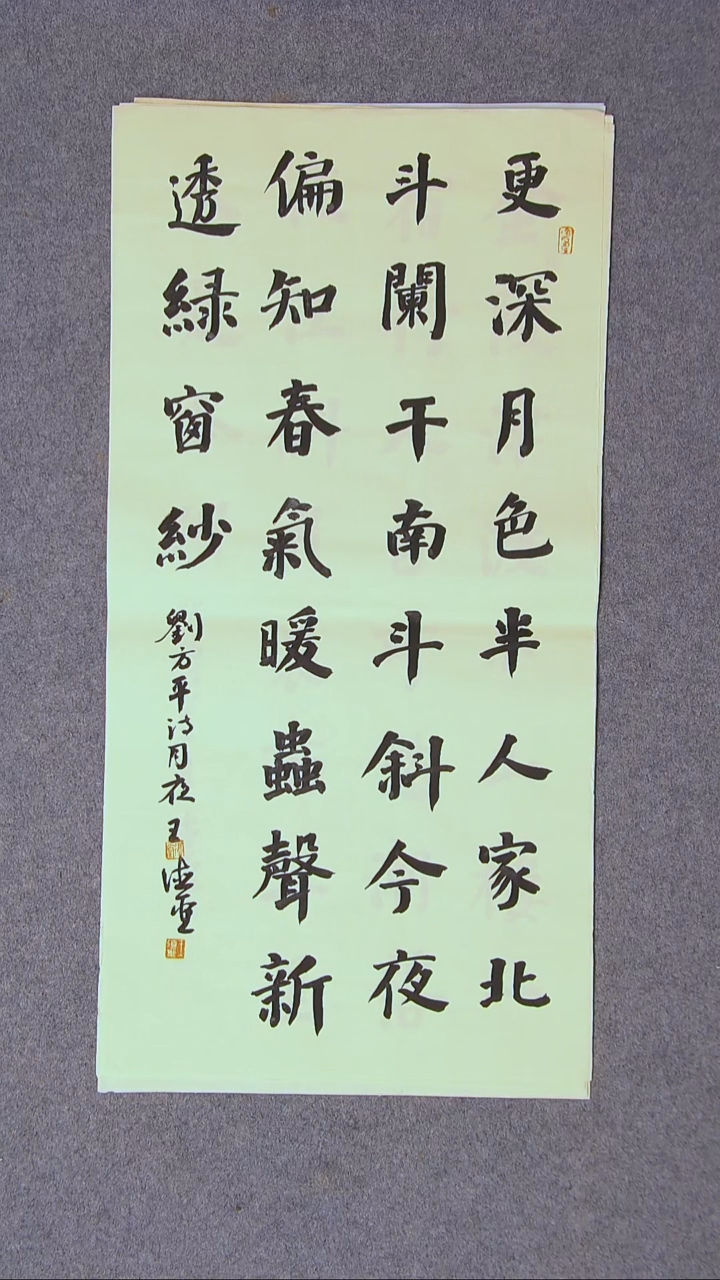 更深月色半人家北
斗闌干南斗斜今夜
偏知春氣暖蟲聲新
透綠窗紗
劉方平詩月夜王德